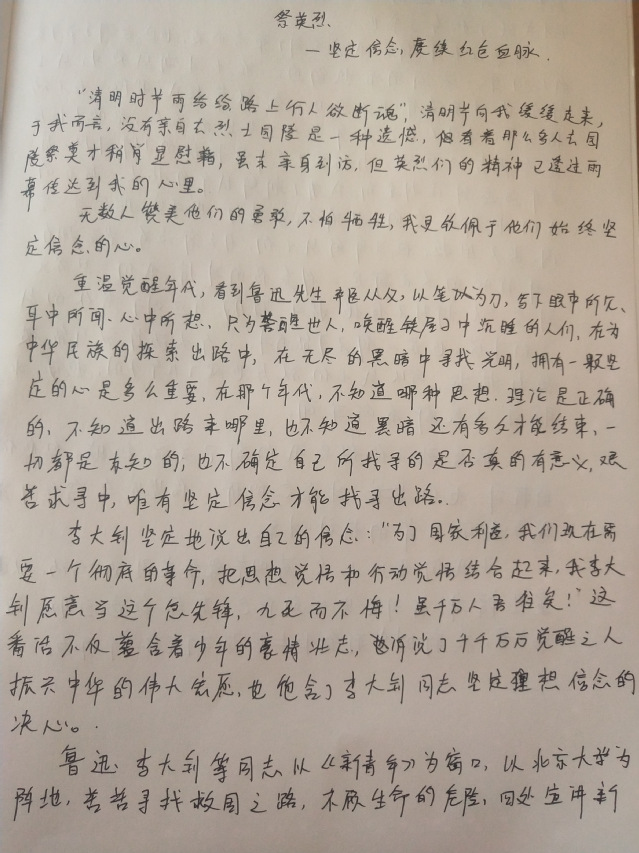 祭英烈
—坚定信念,赓续红色血脉.
"清明时节雨纷纷路上行人欲断魂",清明节向我缓缓走来,
于我而言,没有亲自去烈士园陵是一种遗憾,但看着那么多人去园
陵祭奠才稍肯显慰藉,虽未亲自到访,但英烈们的精神已透过雨
幕传达到我的心里。
无数人赞美他们的勇敢,不怕牺牲,我更钦佩于他们始终坚
定信念的心。
重温觉醒年代,看到鲁迅先生弃医从文,以笔为刀,写下眼中所见、
耳中所闻、心中所想,只为警醒世人,唤醒铁屋子中沉睡的人们,在为
中华民族的探索出路中,在无尽的黑暗中寻找光明,拥有一颗坚
定的心是多么重要,在那个年代,不知道哪种思想.理论是正确
的,不知道出路在哪里,也不知道黑暗还有多久才能结束,一
切都是未知的,也不确定自己所找寻的是否真的有意义,艰
苦求寻中,唯有坚定信念才能找寻出路。
李大钊坚定地说出自己的信念:"为了国家利益,我们现在需
要一个彻底的革命,把思想觉悟和行动觉悟结合起来,我李大
钊愿意当这个急先锋,九死而不悔!虽千万人吾往矣!"这
番话不仅蕴含着少年的豪情壮志,也诉说了千千万万觉醒之人
振兴中华的伟大宏愿,也包含了李大钊同志坚定理想信念的
决心。
鲁迅.李大钊等同志以《新青年》为窗口,以北京大学为
阵地,苦苦寻找救国之路,不顾生命的危险,四处宣讲新